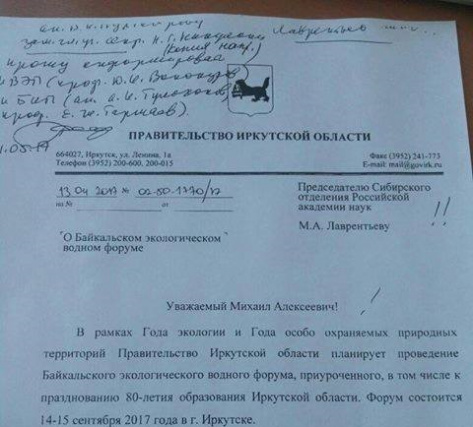 Лаврентьев
прошу информировать
ПРАВИТЕЛЬСТВО ИРКУТСКОЙ ОБЛАСТИ
664027, Иркутск, ул. Ленина, 1а
Телефон (3952) 200-600, 200-015
Факс (3952) 241-773
E-mail: mail@govirk.ru
13.04.2017 № 02-50-1770/17
на № от
Председателю Сибирского
отделения Российской
академии наук
М.А. Лаврентьеву
!!
"О Байкальском экологическом
водном форуме"
Уважаемый Михаил Алексеевич!
В рамках Года экологии и Года особо охраняемых природных
территорий Правительство Иркутской области планирует проведение
Байкальского экологического водного форума, приуроченного, в том числе к
празднованию 80-летия образования Иркутской области. Форум состоится
14-15 сентября 2017 года в г. Иркутске.